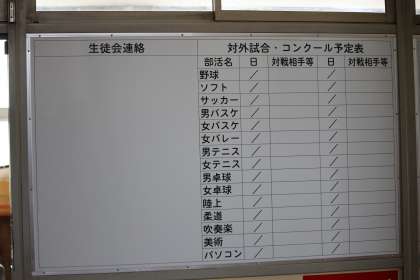 生徒会連絡
対外試合・コンクール予定表
部活名 日 対戦相手等 日 対戦相手等
野球 ／ ／
ソフト ／ ／
サッカー ／ ／
男バスケ ／ ／
女バスケ ／ ／
女バレー ／ ／
男テニス ／ ／
女テニス ／ ／
男卓球 ／ ／
女卓球 ／ ／
陸上 ／ ／
柔道 ／ ／
吹奏楽 ／ ／
美術 ／ ／
パソコン ／ ／